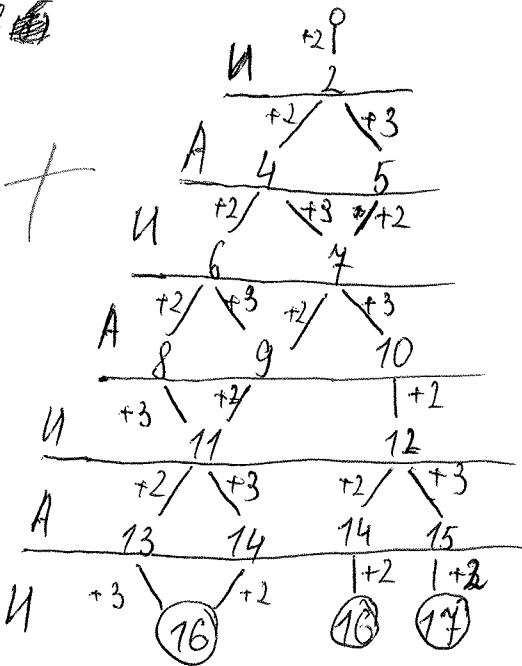 +2
И 2
+2 +3
А 4 5
+2 +3 +2
И 6 7
+2 +3 +2 +3
А 8 9 10
+3 +2 +2
И 11 12
+2 +3 +2 +3
А 13 14 14 15
+3 +2 +2 +2
И 16 16 17